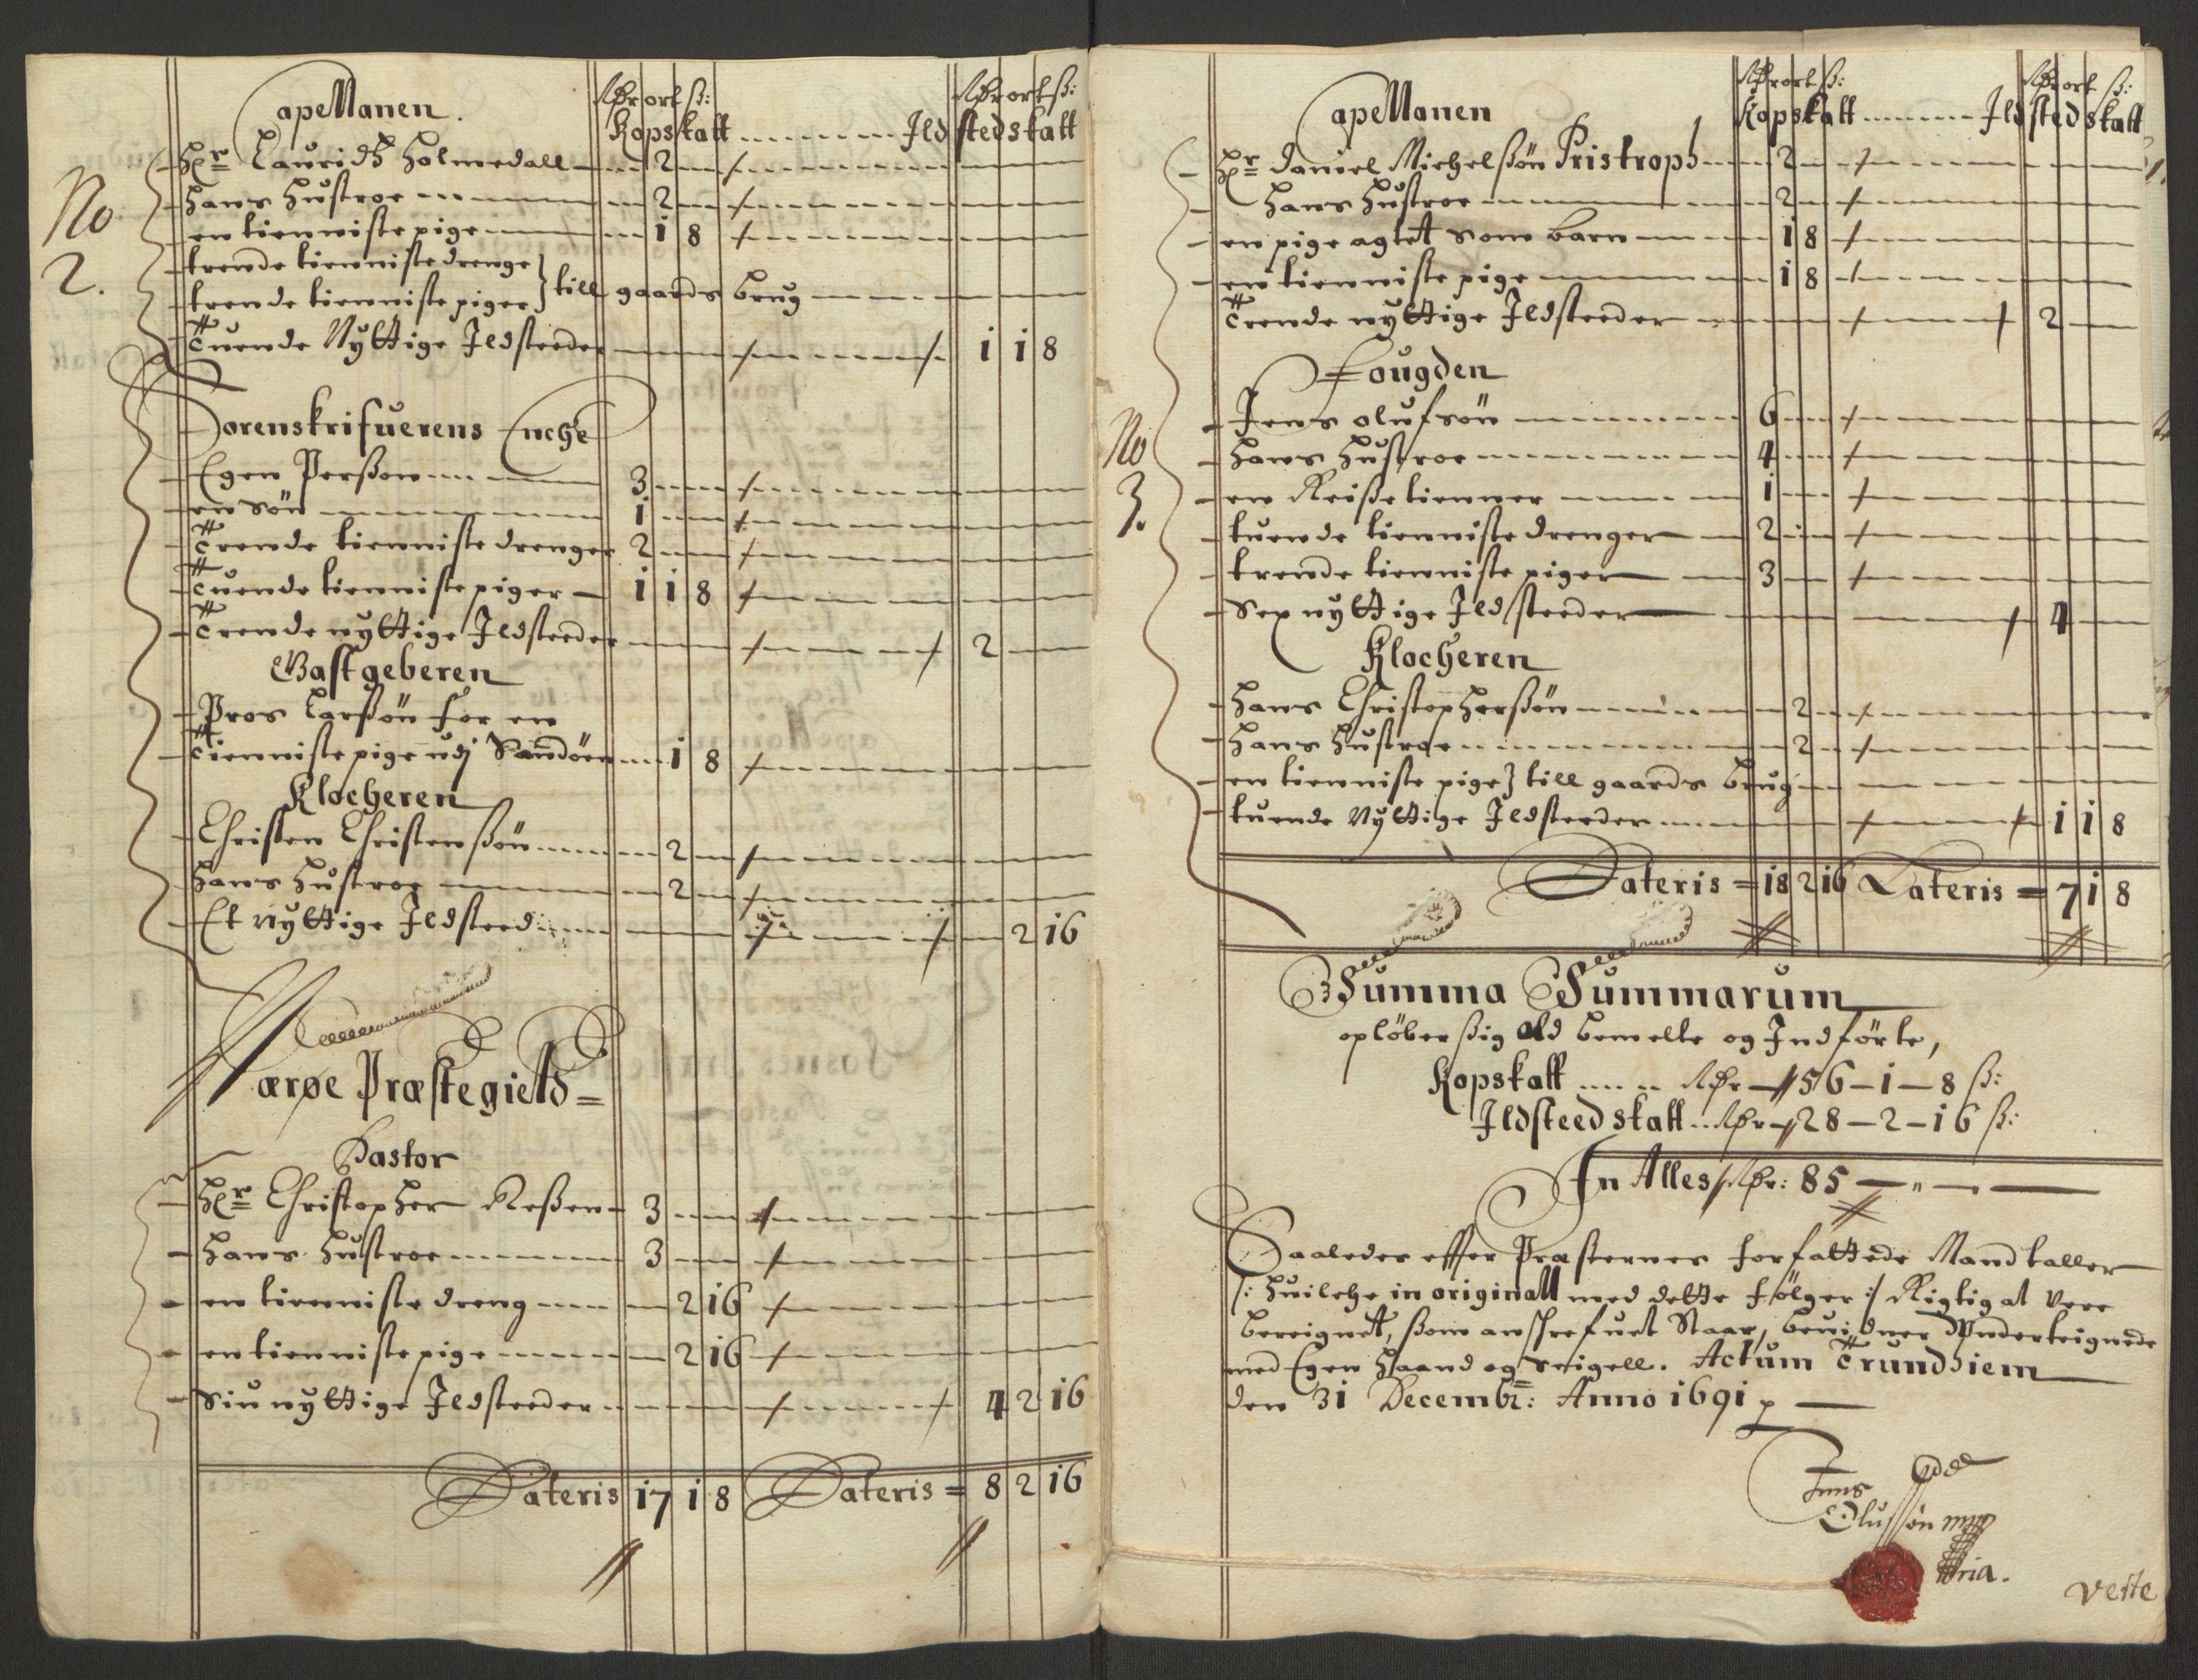 Rdr ort ß: Rdr ort ß:
Capellanen. Kopskatt ........ Ildstedskatt
No 2.
Hr Lauridtz Holmedall 2
hans hustroe 2
en tienniste pige 1 8
trende tienniste drenge
trende tienniste piger } till gaards brug
Tuende Nyttige Ildsteeder 1 1 8
Sorenskrifuerens Enche
Egen Perßon 3
en Søn 1
Trende tienniste drenger 2
Tuende tienniste piger 1 1 8
Trende nyttige Ildsteeder 2
Gastgeberen
Pros Larßøn for en
Tienniste pige udj Sandøen 1 8
Klocheren
Christen Christenßøn 2
hans hustroe 2
Et nyttige Ildsteed 2 16
Nærøe Præstegield =
Pastor
Hr Christopher Reßen 3
hans hustroe 3
en tienniste dreng 2 16
en tienniste pige 2 16
Siu nyttige Ildsteeder 4 2 16
Lateris 17 1 8 Lateris = 8 2 16
Rdr ort ß: Rdr ort ß:
Capellanen Kopskatt ........ Ildstedskatt
Hr Daniel Michelßøn Pristroph 2
hans hustroe 2
en pige agtet som barn 1 8
en tienniste pige 1 8
Trende nyttige Ildsteeder 2
Fougden
No 3.
Jens olufsøn 6
hans hustroe 4
en Reißetienner 1
tuende tienniste drenger 2
trende tienniste piger 3
Sex nyttige Ildsteeder 4
Klocheren
Hans Christopherßøn 2
hans hustroe 2
en tienniste pige } till gaards brug
tuende Nyttige Ildsteeder 1 1 8
Lateris = 18 2 16 Lateris = 7 1 8
Summa Summarum
opløber ßig ald bemelte og Indførte,
Kopskatt ..... Rdr 56 - 1 - 8 ß:
Ildsteedskatt .. Rdr 28 - 2 - 16 ß:
In Alles Rdr: 85 - " -
Saaledes effter Præsternes forfattede Mandtaller
/: huilche in originall med dette følger :/ Rigtig at vere
bereignet, ßom anschrefuet Staar, beuidner Underteignede
med Egen Haand og Seigell. Actum Trundhiem
den 31 Decembr: Anno 1691 p
Jens
Olufsøn mp
pria.
veste